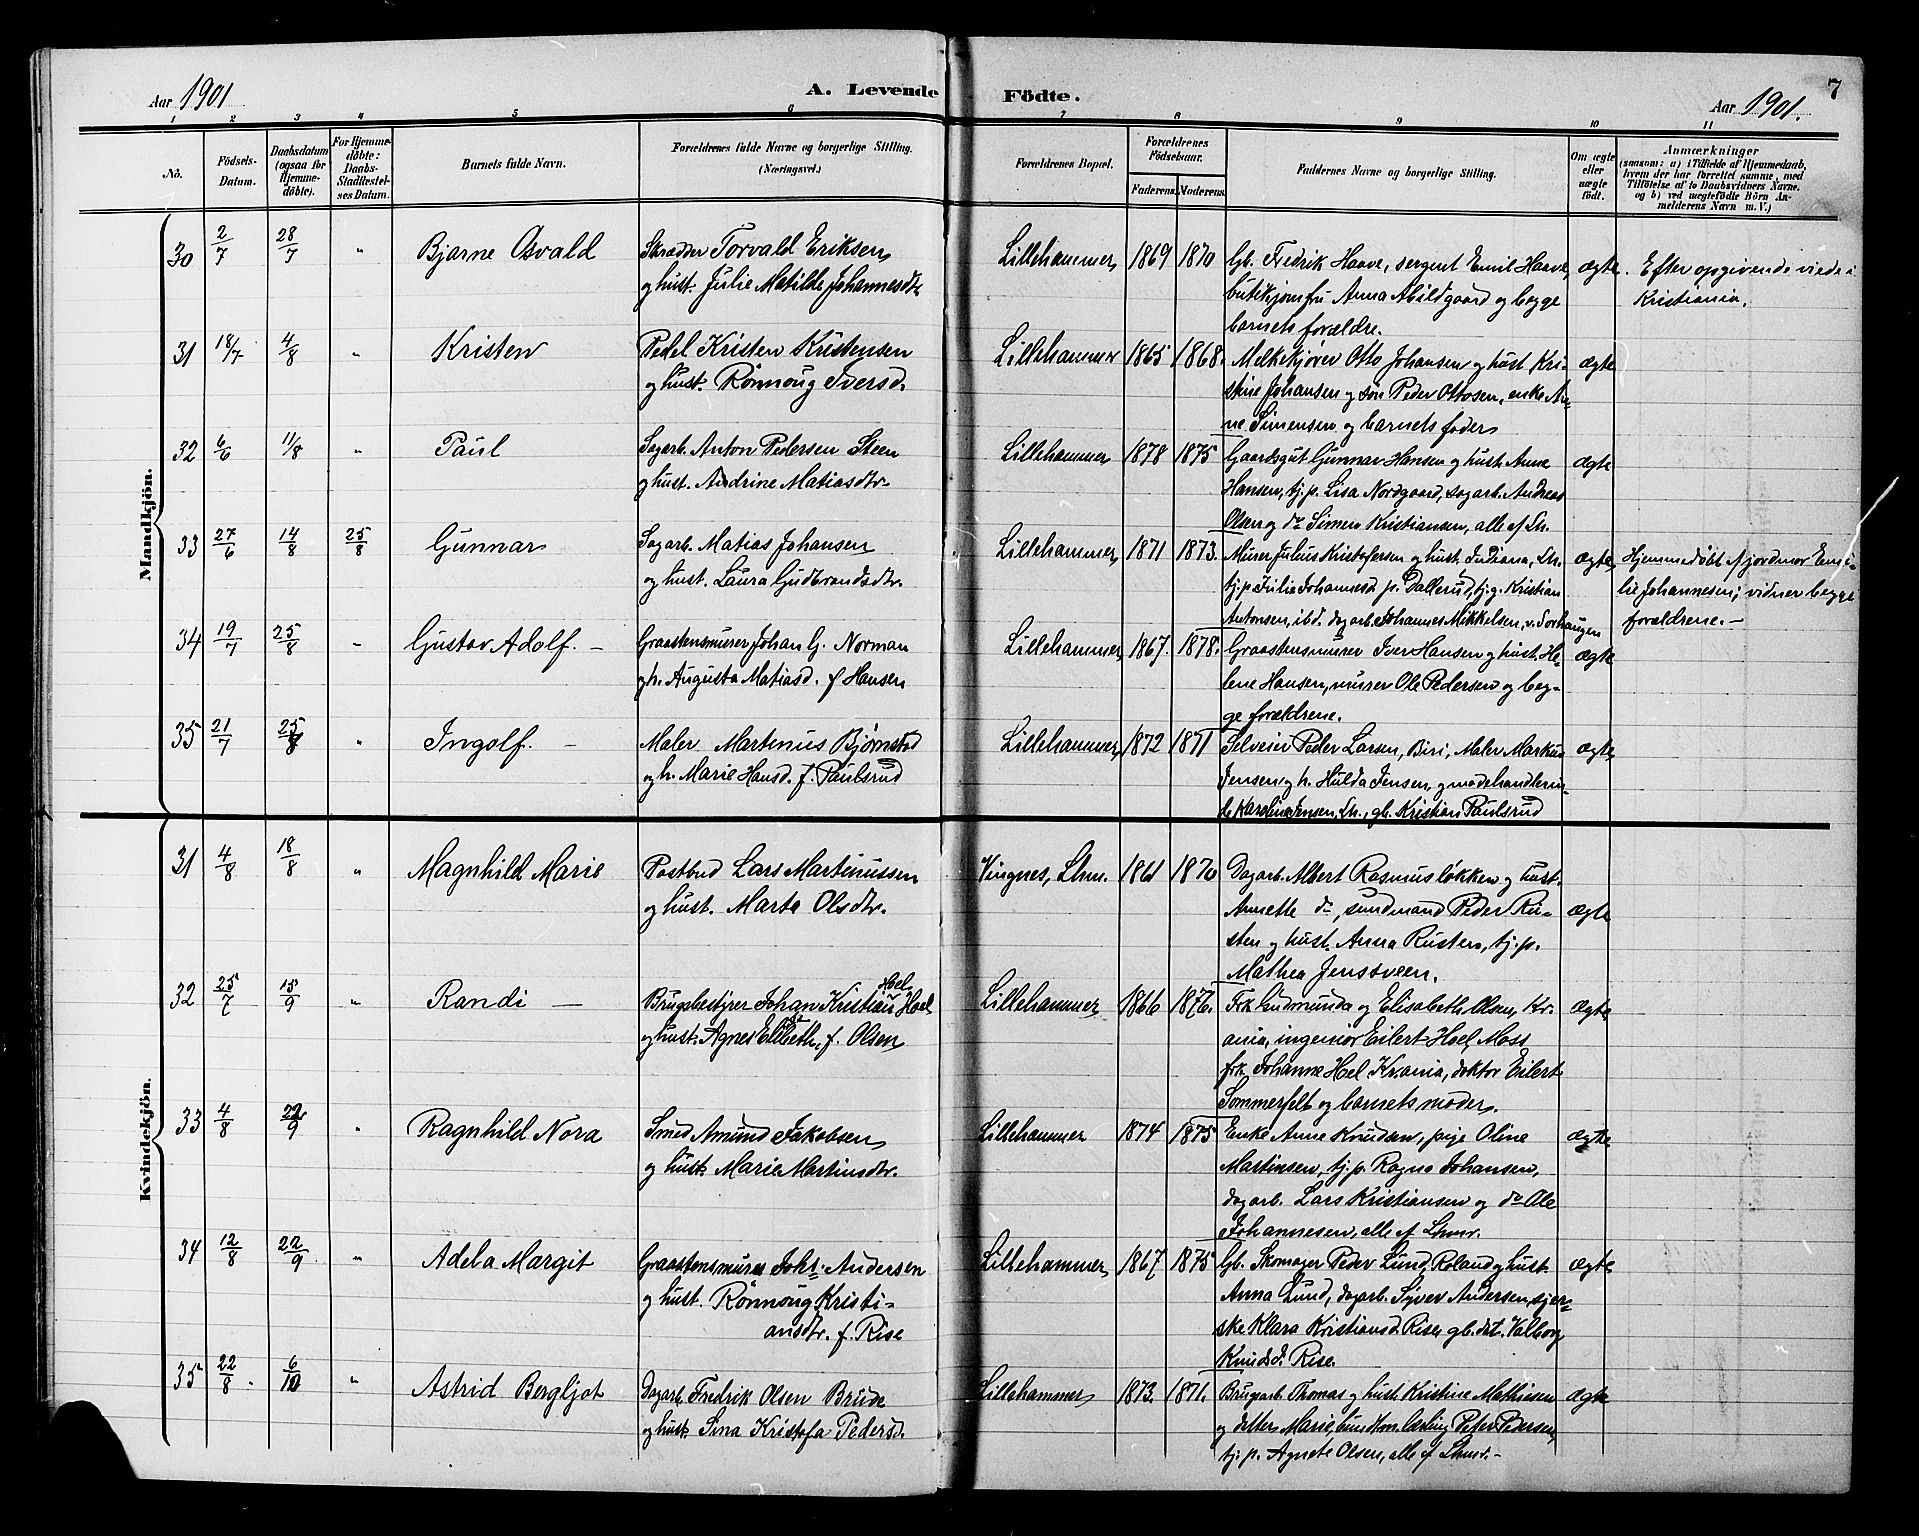 Aar 1901
A. Levende Födte.
Aar 1901.
7
1 2 3 4 5 6 7 8 9 10 11
No.
Födsels-
Datum.
Daabsdatum
(ogsaa for
Hjemme-
döbte).
For Hjemme-
döbte:
Daabs-
Stadfæstel-
ses Datum.
Barnets fulde Navn.
Forældrenes fulde Navne og borgerlige Stilling.
(Næringsvei.)
Forældrenes Bopæl.
Forældrenes
Födselsaar.
Faderens.
Moderens.
Faddernes Navne og borgerlige Stilling.
Om ægte
eller
uægte
födt.
Anmærkninger
(saasom: a) i Tilfælde af Hjemmedaab,
hvem der har forrettet samme, med
Tilföielse af to Daabsvidners Navne.
og b) ved uægtefödte Börn An-
melderens Navn m. V.)
Mandkjön.
30 2/7 28/7 " Bjarne Osvald
Skrædder Torvald Eriksen
og hust. Julie Matilde Johannesdtr
Lillehammer 1869 1870
Gb. Fredrik Haave, sergent Emil Haave,
butikjomfru Anna Abildgaard og begge
barnets forældre.
ægte.
Efter opgivende viede i
Kristiania.
31 18/7 4/8 " Kristen
Pedel Kristen Kristensen
og hust. Rønnoug Iversd.
Lillehammer 1865 1868.
Melkekjører Otto Johansen og hust. Kri-
stine Johansen og søn Peder Ottosen, enke An-
ne Simensen og barnets fader
ægte
32 6/6 11/8 " Paul
Sagarb. Anton Pedersen Steen
og hust. Andrine Matiasdtr.
Lillehammer 1878 1875
Gaardsgut Gunnar Hansen og hust. Anne
Hansen, tj.p. Lisa Nordgaard, sagarb. Andreas
Olsen og do Simen Kristiansen, alle af Lh.
ægte
33 27/6 14/8 25/8 Gunnar
Sagarb. Matias Johansen
og hust. Laura Gudbrandsdtr.
Lillehammer 1871 1873.
Murer Julius Kristofersen og hust. Indiana, Lh.
tj.p. Julie Johannesd p. Dallerud, tj.g. Kristian
Antonsen, ibd. dagarb. Johannes Mikkelsen, v. Sorhaugen
ægte
Hjemmedöbt af jordmor Emi-
lie Johannesen; vidner begge
forældrene. -
34 19/7 25/8 " Gustav Adolf. -
Graastensmurer Johan G. Norman
og h. Augusta Matiasd. f. Hansen
Lillehammer 1867 1878.
Graastensmurer Iver Hansen og hust. He-
lene Hansen, murer Ole Pedersen og beg-
ge forældrene.
ægte
35 21/7 25/8 " Ingolf. -
Maler Martinius Bjørnstad
og h. Marie Hansd. f. Paulsrud
Lillehammer 1872 1871
Selveier Peder Larsen, Biri, Maler Markus
Jensen og h. Hulda Jensen, og modehandlerin-
de Karoline Jensen, Lh., gb. Kristian Paulsrud
ægte
Kvindekjön.
31 4/8 18/8 " Magnhild Marie
Postbud Lars Martinussen
og hust. Marte Olsdtr.
Vingnes, Lhm. 1861 1870
Dagarb. Albert Rasmusløkken og hust.
Annette do, sundmand Peder Ru-
sten og hust. Anna Rusten, tj.p.
Mathea Jenssveen.
ægte
32 25/7 15/9 " Randi -
Brugsbestyrer Johan Kristian Hoel
og hust. Agnes Elisbeth, f. Olsen
Lillehammer 1866 1876.
Frk. Gudmunda og Elisabeth Olsen, Kr-
ania, ingeniør Eilert Hoel, Moss
frk. Johanne Hoel Krania, doktor Eilert
Sommerfelt og barnets moder.
ægte
33 4/8 22/9 " Ragnhild Nora
Smed Amund Jakobsen
og hust. Marie Martinsdtr.
Lillehammer 1874 1875
Enke Anne Knudsen, pige Oline
Martinsen, tj.p. Ragne Johansen,
dagarb. Lars Kristiansen og do Ole
Johannesen, alle af Lhmr.
ægte
34 12/8 22/9 " Adela Margit
Graastensmurer Johs. Andersen
og hust. Rønnoug Kristi-
ansdtr. f. Rise
Lillehammer 1867 1875
Gb. Skomager Peder Lund Roland og hust.
Anna Lund, dagarb. Syver Andersen, sjer-
ske Klara Kristiansd. Rise, gb.dat. Valborg
Knudsd. Rise.
ægte
35 22/8 6/10 " Astrid Bergljot
Dagarb. Fredrik Olsen Brude
og hust. Sina Kristofa Pedersd.
Lillehammer 1873. 1871.
Brugarb. Thomas og hust. Kristine Mathisen
og datter Marie, Peter Pedersen,
tj.p. Agnete Olsen, alle af Lhmr. -
ægte